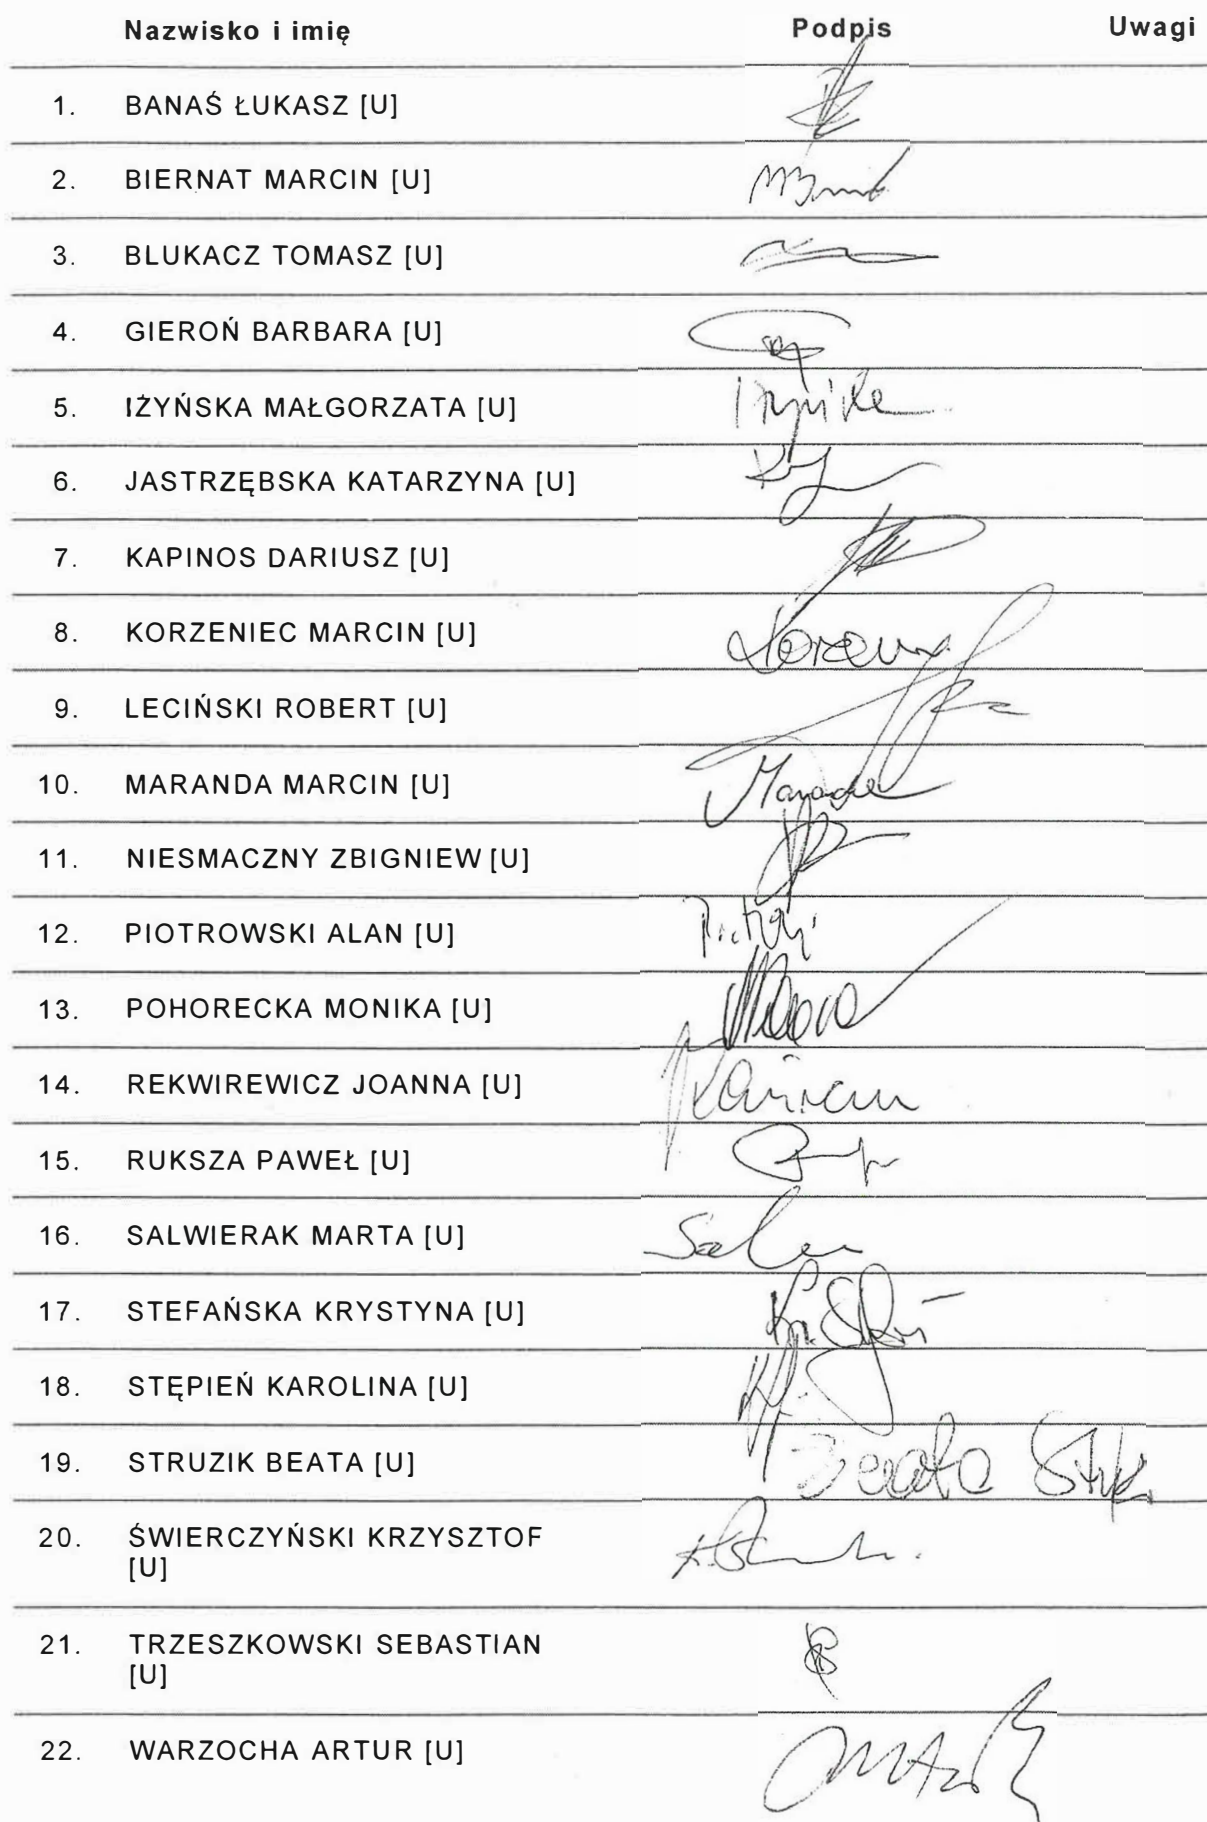 Nazwisko i imię Podpis Uwagi
1. BANAŚ ŁUKASZ [U]
2. BIERNAT MARCIN [U]
3. BLUKACZ TOMASZ [U]
4. GIEROŃ BARBARA [U]
5. IŻYŃSKA MAŁGORZATA [U]
6. JASTRZĘBSKA KATARZYNA [U]
7. KAPINOS DARIUSZ [U]
8. KORZENIEC MARCIN [U]
9. LECIŃSKI ROBERT [U]
10. MARANDA MARCIN [U]
11. NIESMACZNY ZBIGNIEW [U]
12. PIOTROWSKI ALAN [U]
13. POHORECKA MONIKA [U]
14. REKWIREWICZ JOANNA [U]
15. RUKSZA PAWEŁ [U]
16. SALWIERAK MARTA [U]
17. STEFAŃSKA KRYSTYNA [U]
18. STĘPIEŃ KAROLINA [U]
19. STRUZIK BEATA [U] Beata
20. ŚWIERCZYŃSKI KRZYSZTOF
[U]
21. TRZESZKOWSKI SEBASTIAN
[U]
22. WARZOCHA ARTUR [U]